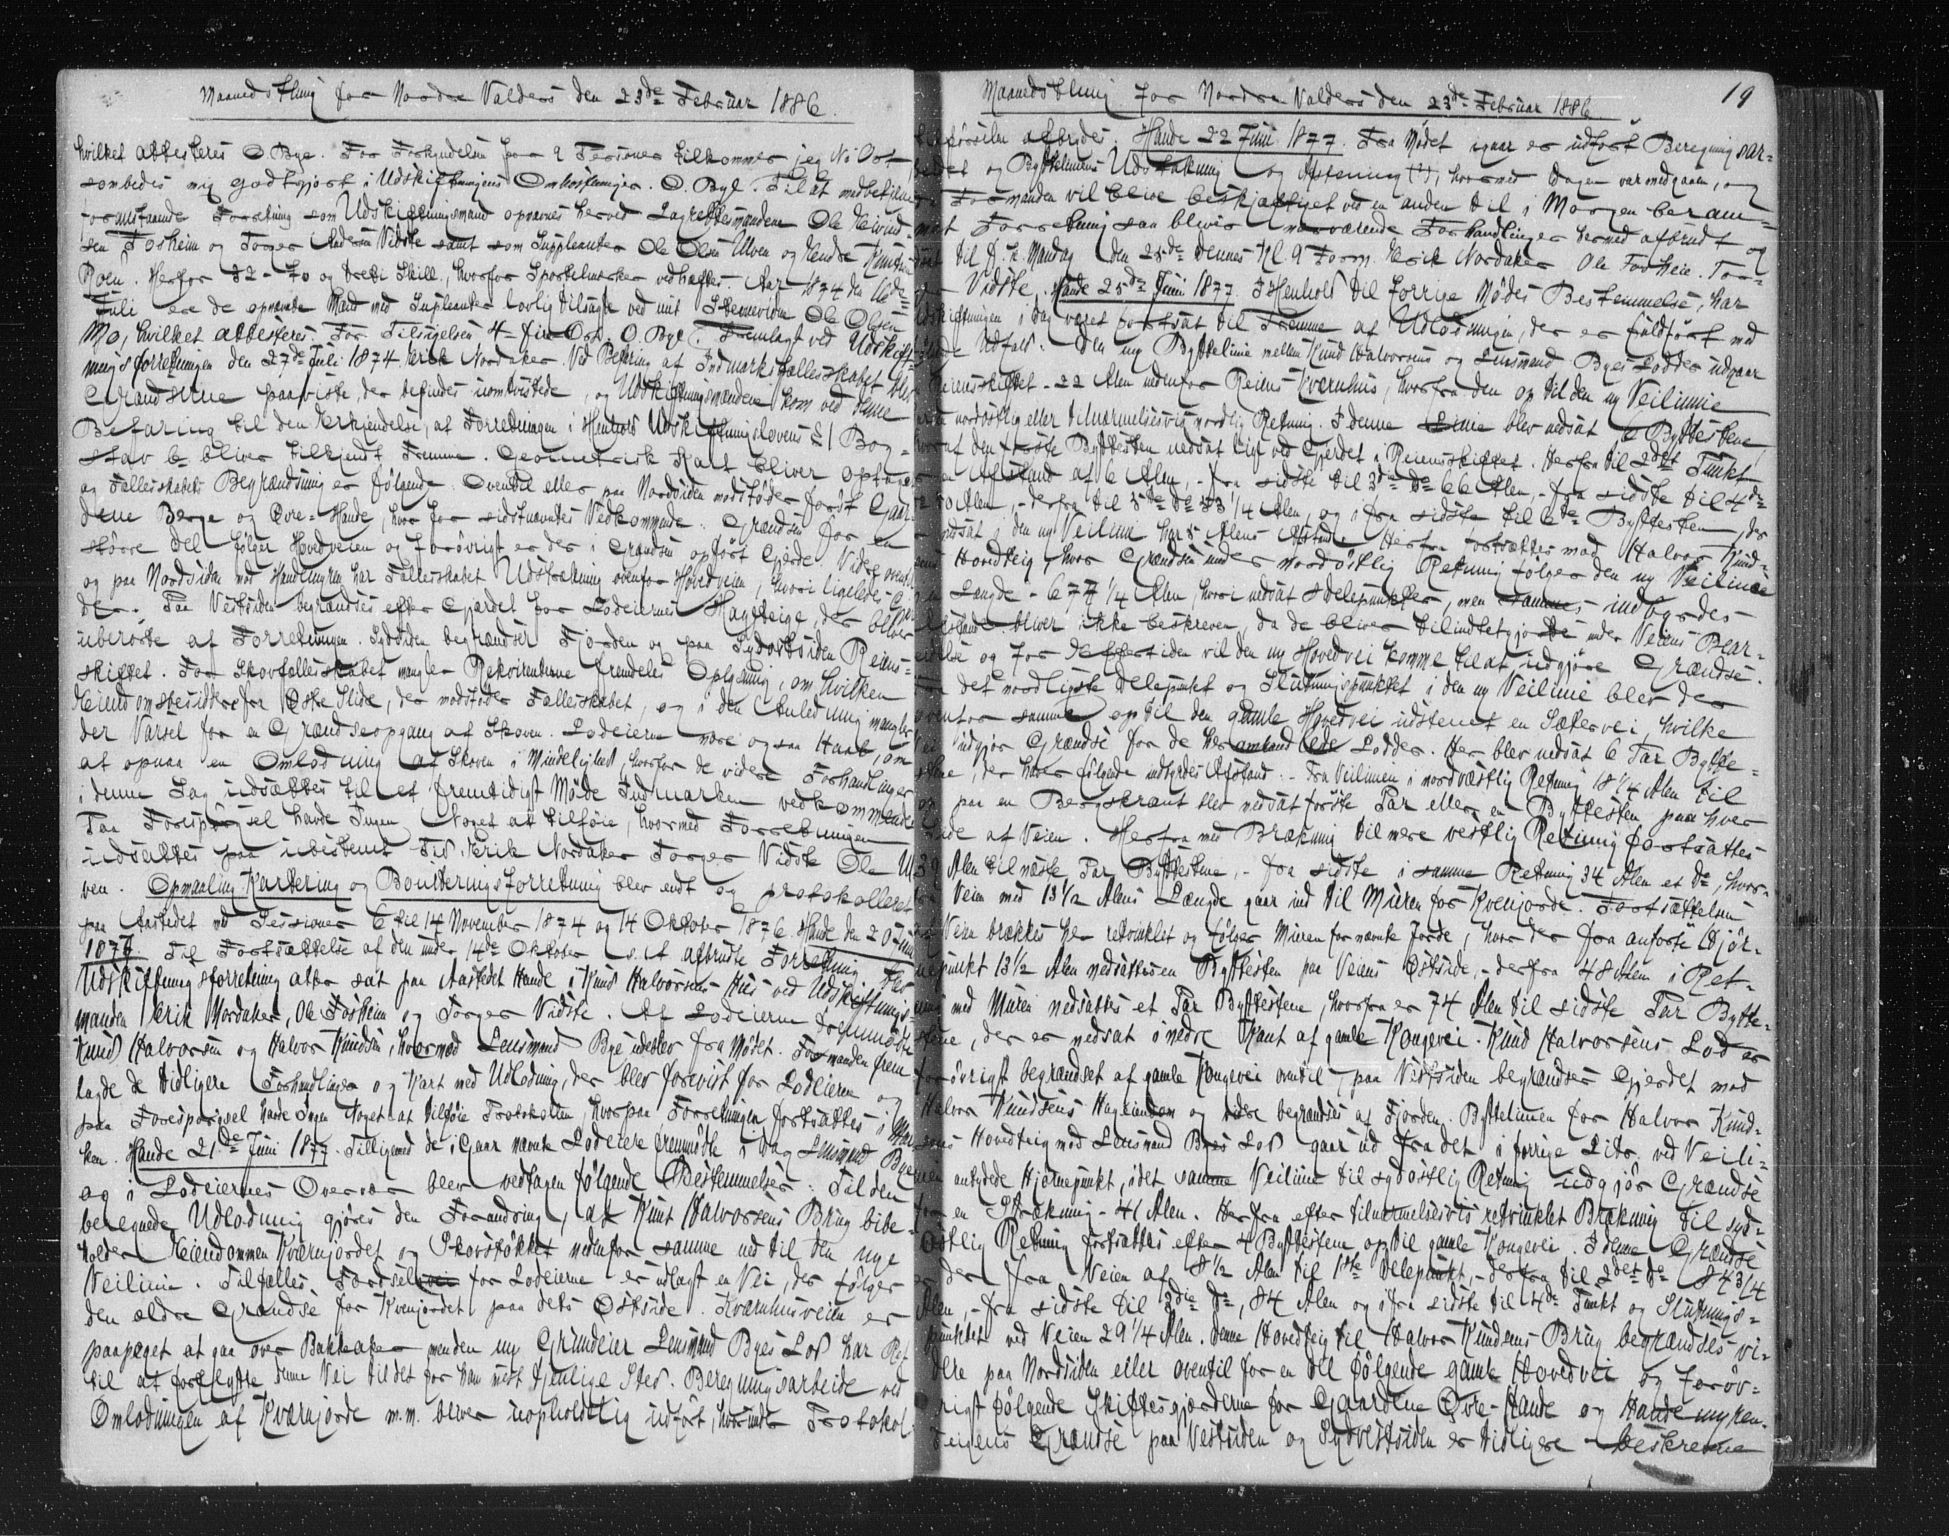 Maanedsthing for Nordre Valders den 23de Februar 1886.
hvilket attesteres O. Bye. For Forkyndelsen for 9 Personer tilkommer jeg No Ort
som bedes mig godtgjort i Udskiftningens Omkostninger. O. Bye. Til at medbetjene
foranstaaende Forretning som Udskiftningsmænd opnævnes herved Lagrettesmændene Ole
sen Fosheim og Torger Vidste samt som Suppleanter Ole Olsen Ulven og
Roen. Herfor 32 - to og tredive Skill, hvorfor Sportelmærker vedhæftes. Aar 1874 den 16de
Juli ere de opnævnte Mænd med Supleanter lovlig tilsagte ved mit Stevnevidne Ole Olsen
Mo, hvilket attesteres. For Tilsigelsen 4 - fire Ort. O. Bye. Fremlagt ved Udskift-
ningsforretningen den 27de Juli 1874. Erik Nordaker. Ved Befaring af Indmarksfællesskabet blev
Grændserne paaviste, der befindes uomtvistede, og Udskiftningsmændene kom ved denne
Befaring til den Erkjendelse, at Forretningen i Henhold Udskiftningslovens § 1 Bog-
stav b. bliver tilkjendt Fremme. Geometrisk Kart bliver optaget
og Fællesskabets Begrændsning er følgende. Oventil eller paa Nordsiden modstøder først Gaar-
dene Berge og Øvre-Hande, hvor for sidstnævntes Vedkommende Grændsen for en
større Del følger Hovedveien og forøvrigt er der i Grændsen opført Gjerde. Videre
og paa Nordsiden mod Handemyren har Fællesskabet Udstrækning ovenfor Hovedveien, hvori ligeledes
der. Paa Vestsiden begrændses efter Gjerdet for Lodeiernes Havnteige, der bliver
uberørte af Forretningen. Sydsiden begrændser Fjorden og paa Sydostsiden Reins-
skiftet. For Skovfællesskabet mangler Rekvirenterne fremdeles Oplysning, om hvilken
Eiendomsbesidder for Østre Slidre, der modstøder Fællesskabet, og i den Anledning mangler
der Varsel for en Grændseopgang af Skoven. Lodeierne nære ogsaa Haab, om
at opnaa en Omlodning af Skoven i Mindelighed, hvorfor de videre Forhandlinger
i denne Sag udsættes til et fremtidigt Møde Indmarken vedkommende
Paa Forespørgsel havde Ingen Noget at tilføie, hvormed Forretningen
udsættes paa ubestemt Tid. Erik Nordaker Torger Vidste Ole Ul-
ven. Opmaaling Kartering og Boniteringsforretning blev endt og protokolleret
paa Aastedet med Sessioner 6 til 14 November 1874 og 14 Oktober 1876. Hande den 20 Juni
1877 Til Fortsættelse af den under 14de Oktober s. A. afbrudte Forretning blev
Udskiftningsforretning atter sat paa Aastedet Hande i Knud Halvorsens Hus ved Udskiftnings-
manden Erik Nordaker, Ole Fosheim og Torger Vidste. Af Lodeierne fremmødte
Knud Halvorsen og Halvor Knudsen, hvormod Lensmand Bye udebler fra Mødet. Formanden frem
lagde de tidligere Forhandlinger og Kart med Udlodning, der blev forevist for Lodeierne og
paa Forespørgsel havde Ingen Noget at tilføie Protokollen, hvorpaa Forretningen fortsattes i Mar
ken. Hande 21de Juni 1877. Tilligemed de igaar nævnte Lodeiere fremmødte i Dag Lensmand Bye
og i Lodeiernes Overvær blev vedtagen følgende Bestemmelser. Til den
beregnede Udlodning gjøres den Forandring, at Knut Halvorsens Brug bibe-
holder Eiendommen Kværnjordet og Skovstøkket nedenfor samme ned til den nye
Veilinie. Til fælles Færdsel for Lodeierne er udlagt en Vei, der følger
den ældre Grændse for Kvenjordet paa dets Østside. Kværnhusveien er
paapeget at gaa over Bakkeaker men den ny Grundeier Lensmand Byes Lod har Ret
til at forflytte denne Vei til det for ham mest tjenlige Sted. Beregningsarbeide ved
Omlodningen af Kværnjorde m. m. bliver uopholdelig udført, hvorunder Protokol-
Maanedsthing for Nordre Valders den 23de Februar 1886.
19
tilførselen afbrydes. Hande 22 Juni 1877. Fra Mødet igaar er udført Beregningsar-
beidet og Byttelinens Udstikning og Udstening, hvormed Dagen var medgaaen, og
da Formanden vil blive beskjæftiget ved en anden til i Morgen beram-
met Forretning saa bliver nærværende Forhandlinger hermed afbrudt og
udsat til D. k. Mandag den 25de dennes Kl. 9 Form. Erik Nordaker Ole Fosheim. Tor-
ger Vidste. Hande 25de Juni 1877. I Henhold til forrige Mødes Bestemmelse, har
Udskiftningen i Dag været fortsat til Fremme af Udlodningen, der er fuldført med
følgende Udfald. Den ny Byttelinie mellem Knud Halvorsens og Lensmand Byes Lodder udgaar
fra Reinsskiftet - 22 Alen nedenfor Reins Kværnhus, hvorfra den op til den ny Veilinie
nordøstlig eller tilnærmelsesvis nordlig Retning. I denne Linie blev nedsat 6 Byttestene
hvoraf den første Byttesten nedsat ligt ved Gjerdet i Reinsskiftet. Herfra til 2det Punkt
er en Afstand af 6 Alen, - fra sidste til 3die Do 66 Alen, - fra sidste til 4de
50 Alen, - derfra til 5te Do 33 1/4 Alen, og ifra sidste til 6te Byttesten, der
er nedsat i den ny Veilinie har 5 Alens Afstand. Herfra fortsættes mod Halvor Knud-
sens Hovedteig, hvor Grændsen under nordøstlig Retning følger den ny Veilinie
en Længde - 677 1/4 Alen, hvori nedsat Delepunkter, men sammes indbyrdes
Afstand bliver ikke beskreven, da de bliver tilintetgjorte under Veiens Bear-
beidelse og for Eftertiden vil den ny Hovedvei komme til at udgjøre Grændse.
Fra det nordligste Delepunkt og Slutningspunktet i den ny Veilinie blev der
ovenfor samme op til den gamle Hovedvei udstenet en Sætervei, hvilke
Vei udgjør Grændse for de her omhandlede Lodder. Her blev nedsat 6 Par Bytte-
stene, der have følgende indbyrdes Afstand. - Fra Veilinien i nordvestlig Retning 18 1/4 Alen til
op paa en Bergskrænt blev nedsat første Par eller en Byttesten paa hver
Side af Veien. Herfra med Brækning til mere vestlig Retning fortsættes
39 Alen til næste Par Byttestene, - fra sidste i samme Retning 34 Alen et Do, hvor-
fra Veien med 13 1/2 Alens Længde gaar ind til Muren for Kvenjorde. Fortsættelsen
Veien brækkes her retvinklet og følger Muren for nævnte Jorde, hvor der fra anførte Hjør-
nepunkt 13 1/2 Alen nedsættes en Byttesten paa Veiens Østside, - derfra 48 Alen i Ret-
ning med Muren nedsættes et Par Byttestene, hvorfra er 74 Alen til sidste Par Bytte-
stene, der er nedsat i nedre Kant af gamle Kongevei. Knud Halvorsens Lod er
forøvrigt begrændset af gamle Kongevei oventil, paa Vestsiden begrændser Gjerdet mod
Halvor Knudsens Hageiendom og videre begrændses af Fjorden. Byttelinien for Halvor Knud-
sens Hovedteig mod Lensmand Byes Lod gaar ud fra det i forrige Litr. ved Veili-
nien antydede Hjørnepunkt, idet samme Veilinie til sydøstlig Retning udgjør Grændse
for en Strækning - 41 Alen. Herfra efter tilnærmelsesvis retvinklet Brækning til syd-
østlig Retning fortsættes efter 4 Byttestene op til gamle Kongevei. I denne Grændse
er der fra Veien af 8 1/2 Alen til 1ste Delepunkt, - derfra til 2det Do 84 3/4
Alen, - fra sidste til 3die Do, 84 Alen og ifra sidste til 4de Punkt og Slutnings-
punktet ved Veien 29 1/4 Alen. Denne Hovedteig til Halvor Knudsens Brug begrændses vi-
dere paa Nordsiden eller oventil for en Del følgende gamle Hovedvei og forøv-
rigt følgende Skiftesgjærderne for Gaardene Øvre-Hande og Handemyren.
Teigens Grændse paa Vestsiden og Sydvestsiden er tidligere beskrevne